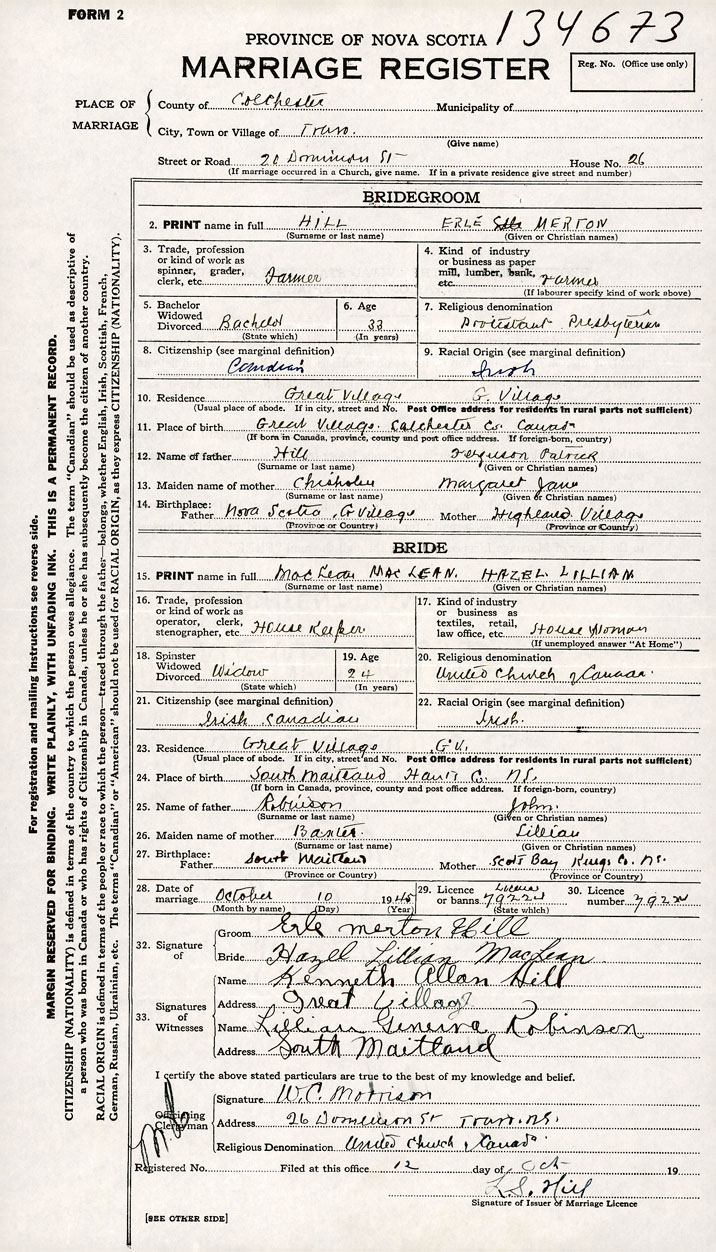 FORM 2
134673
PROVINCE OF NOVA SCOTIA
MARRIAGE REGISTER
Reg. No. (Office use only)
PLACE OF MARRIAGE
County of Colchester Municipality of
City, Town or Village of Truro.
(Give name)
Street or Road 26 Dominion St House No. 26
(If marriage occurred in a Church, give name. If in a private residence give street and number)
BRIDEGROOM
2. PRINT name in full HILL ERLE MERTON
(Surname or last name) (Given or Christian names)
3. Trade, profession or kind of work as spinner, grader, clerk, etc. Farmer
4. Kind of industry or business as paper mill, lumber, bank, etc. Farmer
(If labourer specify kind of work above)
5. Bachelor Widowed Divorced Bachelor
(State which)
6. Age 33
(In years)
7. Religious denomination
Protestant Presbyterian
8. Citizenship (see marginal definition)
Canadian
9. Racial Origin (see marginal definition)
Irish
10. Residence Great Village G. Village
(Usual place of abode. If in city, street and No. Post Office address for residents in rural parts not sufficient)
11. Place of birth Great Village Colchester Co. Canada
(If born in Canada, province, county and post office address. If foreign-born, country)
12. Name of father Hill Ferguson Patrick
(Surname or last name) (Given or Christian names)
13. Maiden name of mother Chisholm Margaret Jane
(Surname or last name) (Given or Christian names)
14. Birthplace: Father Nova Scotia G Village Mother Highland Village
(Province or Country) (Province or Country)
BRIDE
15. PRINT name in full MacLean MACLEAN. HAZEL LILLIAN
(Surname or last name) (Given or Christian names)
16. Trade, profession or kind of work as operator, clerk, stenographer, etc. House Keeper
17. Kind of industry or business as textiles, retail, law office, etc. House Woman
(If unemployed answer "At Home")
18. Spinster Widowed Divorced Widow
(State which)
19. Age 24
(In years)
20. Religious denomination
United Church of Canada.
21. Citizenship (see marginal definition)
Irish Canadian
22. Racial Origin (see marginal definition)
Irish.
23. Residence Great Village G.V.
(Usual place of abode. If in city, street and No. Post Office address for residents in rural parts not sufficient)
24. Place of birth South Maitland Hants C. N.S.
(If born in Canada, province, county and post office address. If foreign-born, country)
25. Name of father Robinson John.
(Surname or last name) (Given or Christian names)
26. Maiden name of mother Baxter. Lillian
(Surname or last name) (Given or Christian names)
27. Birthplace: Father South Maitland Mother Scots Bay Kings Co. N.S.
(Province or Country) (Province or Country)
28. Date of marriage October 10 1945
(Month by name) (Day) (Year)
29. Licence or banns License 7922
(State which)
30. Licence number 7922
32. Signature of
Groom Erle Merton Hill
Bride Hazel Lillian MacLean
33. Signatures of Witnesses
Name Kenneth Allan Hill
Address Great Village
Name Lillian Geneva Robinson
Address South Maitland
I certify the above stated particulars are true to the best of my knowledge and belief.
Officiating Clergyman
Signature W.C. Morrison
Address 26 Dominion St Truro. N.S.
Religious Denomination United Church Canada
Registered No. Filed at this office 12 day of Oct 19
L.S. Hill
Signature of Issuer of Marriage Licence
[SEE OTHER SIDE]
For registration and mailing instructions see reverse side.
MARGIN RESERVED FOR BINDING. WRITE PLAINLY, WITH UNFADING INK. THIS IS A PERMANENT RECORD.
CITIZENSHIP (NATIONALITY) is defined in terms of the country to which the person owes allegiance. The term "Canadian" should be used as descriptive of
a person who was born in Canada or who has rights of Citizenship in Canada, unless he or she has subsequently become the citizen of another country.
RACIAL ORIGIN is defined in terms of the people or race to which the person—traced through the father—belongs, whether English, Irish, Scottish, French,
German, Russian, Ukrainian, etc. The terms "Canadian" or "American" should not be used for RACIAL ORIGIN, as they express CITIZENSHIP (NATIONALITY).